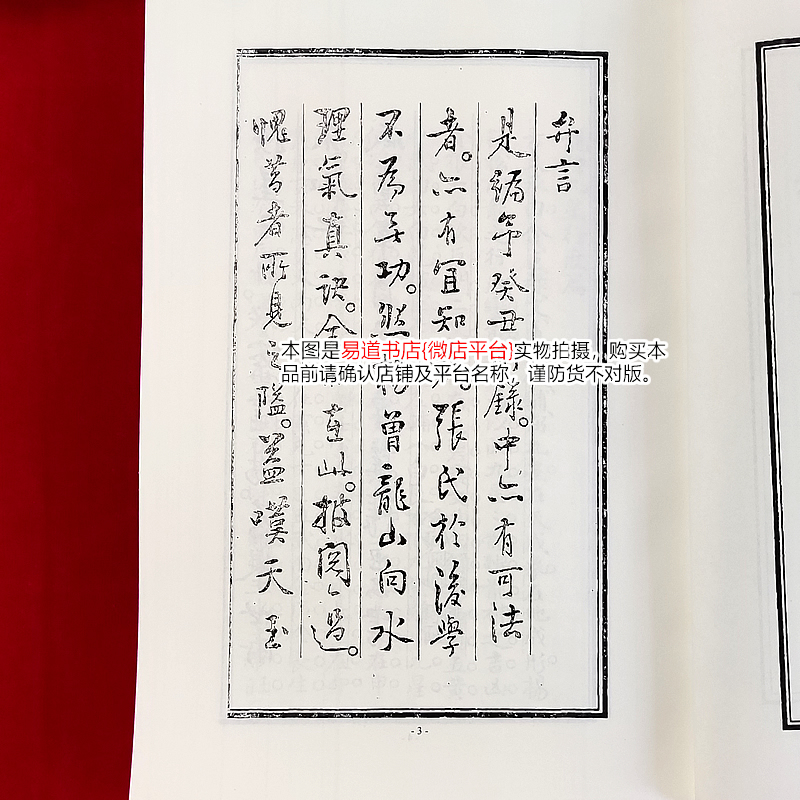 弁言
是編余癸丑錄。中亦有可法
者。亦有宜知。張氏於後學
不為無功。然曾龍山向水
理氣真訣。全在此。披閱一過。
愧著者所見之隘。蓋嘆天玉
本图是易道书店{微店平台}实物拍摄，购买本
品前请确认店铺及平台名称，谨防货不对版。
- 3 -